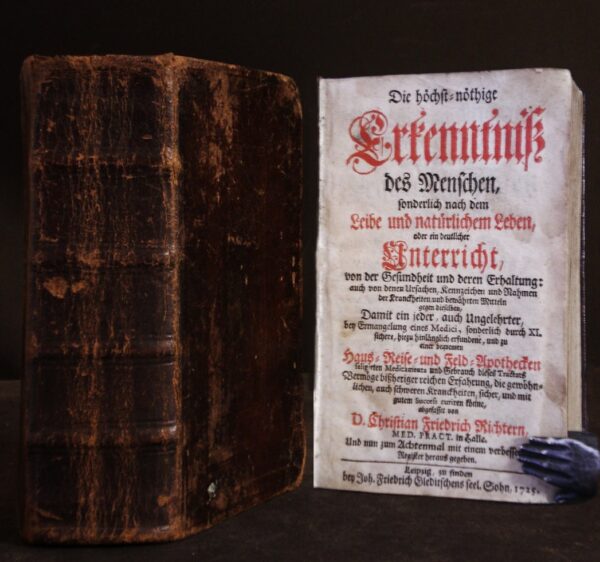 Die höchst-nöthige
Erkenntniß
des Menschen,
sonderlich nach dem
Leibe und natürlichem Leben,
oder ein deutlicher
Unterricht,
von der Gesundheit und deren Erhaltung:
auch von denen Ursachen, Kennzeichen und Nahmen
der Kranckheiten und bewährten Mitteln
gegen dieselben,
Damit ein jeder, auch Ungelehrter,
bey Ermangelung eines Medici, sonderlich durch XI.
sichere, hiezu hinlänglich erfundene, und zu
einer
Haus- Reise- und Feld-Apothecken
Medicamenta und Gebrauch dieses Tractats
Vermöge bißheriger reichen Erfahrung, die gewöhn-
lichen, auch schweren Kranckheiten, sicher, und mit
gutem Success curiren könne,
abgefasset von
D. Christian Friedrich Richtern,
MED. PRACT. in Halle.
Und nun zum Achtenmal mit einem
Register heraus gegeben.
Leipzig, zu finden
bey Joh. Friedrich Gleditschens seel. Sohn, 1725.